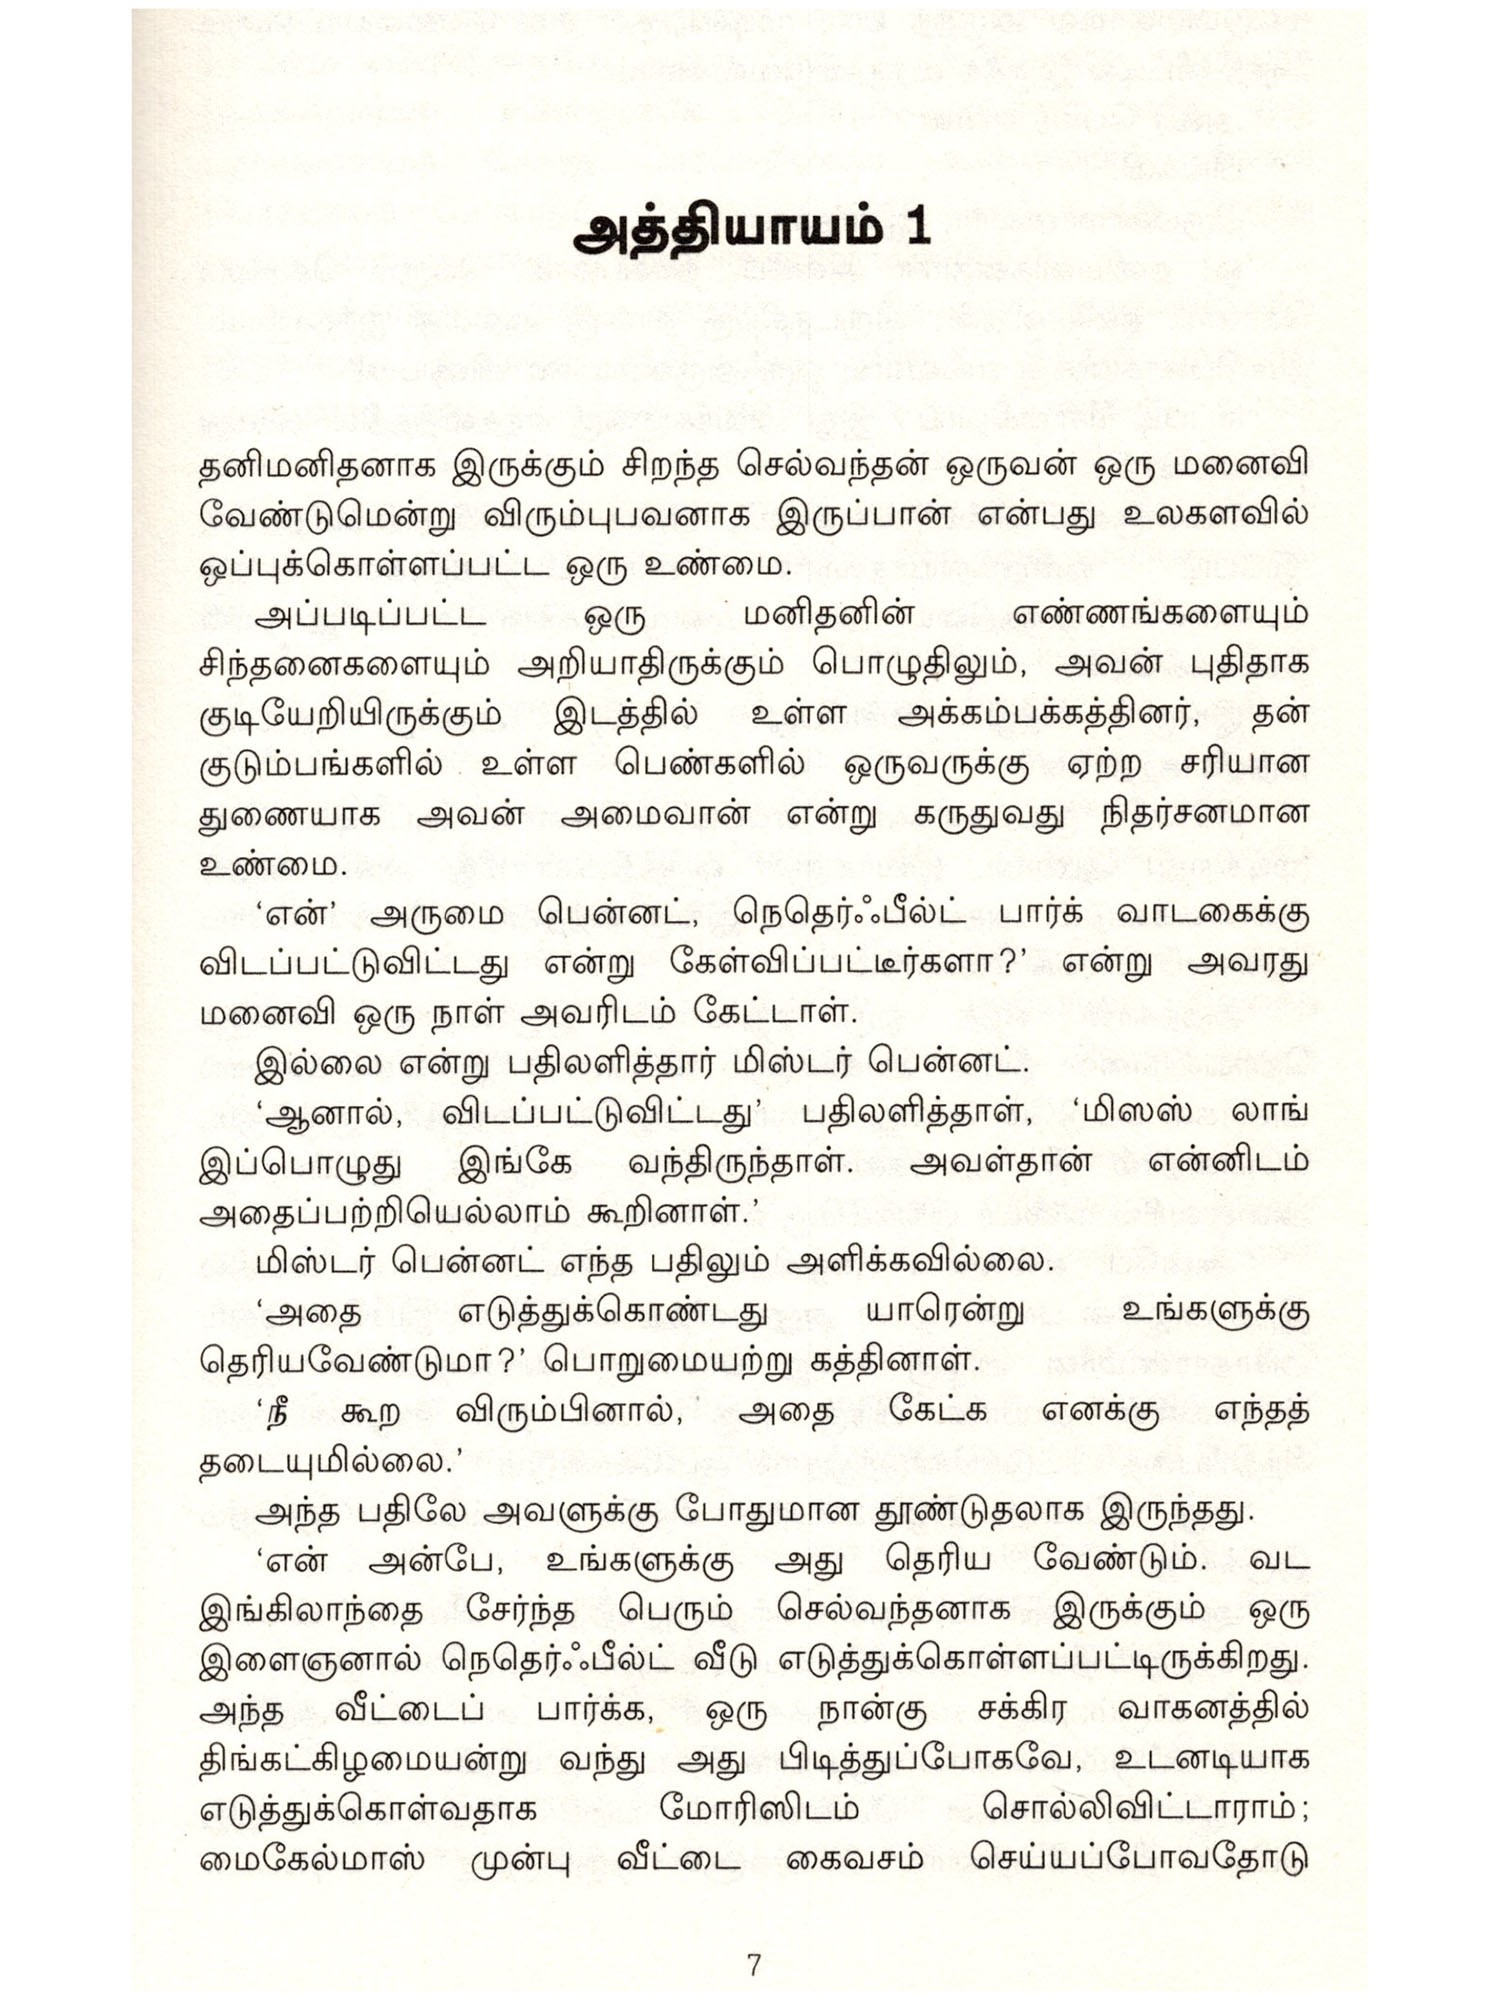 அத்தியாயம் 1
தனிமனிதனாக இருக்கும் சிறந்த செல்வந்தன் ஒருவன் ஒரு மனைவி
வேண்டுமென்று விரும்புபவனாக இருப்பான் என்பது உலகளவில்
ஒப்புக்கொள்ளப்பட்ட ஒரு உண்மை.
அப்படிப்பட்ட ஒரு மனிதனின் எண்ணங்களையும்
சிந்தனைகளையும் அறியாதிருக்கும் பொழுதிலும், அவன் புதிதாக
குடியேறியிருக்கும் இடத்தில் உள்ள அக்கம்பக்கத்தினர், தன்
குடும்பங்களில் உள்ள பெண்களில் ஒருவருக்கு ஏற்ற சரியான
துணையாக அவன் அமைவான் என்று கருதுவது நிதர்சனமான
உண்மை.
‘என்’ அருமை பென்னட், நெதெர்ஃபீல்ட் பார்க் வாடகைக்கு
விடப்பட்டுவிட்டது என்று கேள்விப்பட்டீர்களா?’ என்று அவரது
மனைவி ஒரு நாள் அவரிடம் கேட்டாள்.
இல்லை என்று பதிலளித்தார் மிஸ்டர் பென்னட்.
‘ஆனால், விடப்பட்டுவிட்டது’ பதிலளித்தாள், ‘மிஸஸ் லாங்
இப்பொழுது இங்கே வந்திருந்தாள். அவள்தான் என்னிடம்
அதைப்பற்றியெல்லாம் கூறினாள்.’
மிஸ்டர் பென்னட் எந்த பதிலும் அளிக்கவில்லை.
‘அதை எடுத்துக்கொண்டது யாரென்று உங்களுக்கு
தெரியவேண்டுமா?’ பொறுமையற்று கத்தினாள்.
‘நீ கூற விரும்பினால், அதை கேட்க எனக்கு எந்தத்
தடையுமில்லை.’
அந்த பதிலே அவளுக்கு போதுமான தூண்டுதலாக இருந்தது.
‘என் அன்பே, உங்களுக்கு அது தெரிய வேண்டும். வட
இங்கிலாந்தை சேர்ந்த பெரும் செல்வந்தனாக இருக்கும் ஒரு
இளைஞனால் நெதெர்ஃபீல்ட் வீடு எடுத்துக்கொள்ளப்பட்டிருக்கிறது.
அந்த வீட்டைப் பார்க்க, ஒரு நான்கு சக்கிர வாகனத்தில்
திங்கட்கிழமையன்று வந்து அது பிடித்துப்போகவே, உடனடியாக
எடுத்துக்கொள்வதாக மோரிஸிடம் சொல்லிவிட்டாராம்;
மைகேல்மாஸ் முன்பு வீட்டை கைவசம் செய்யப்போவதோடு
7